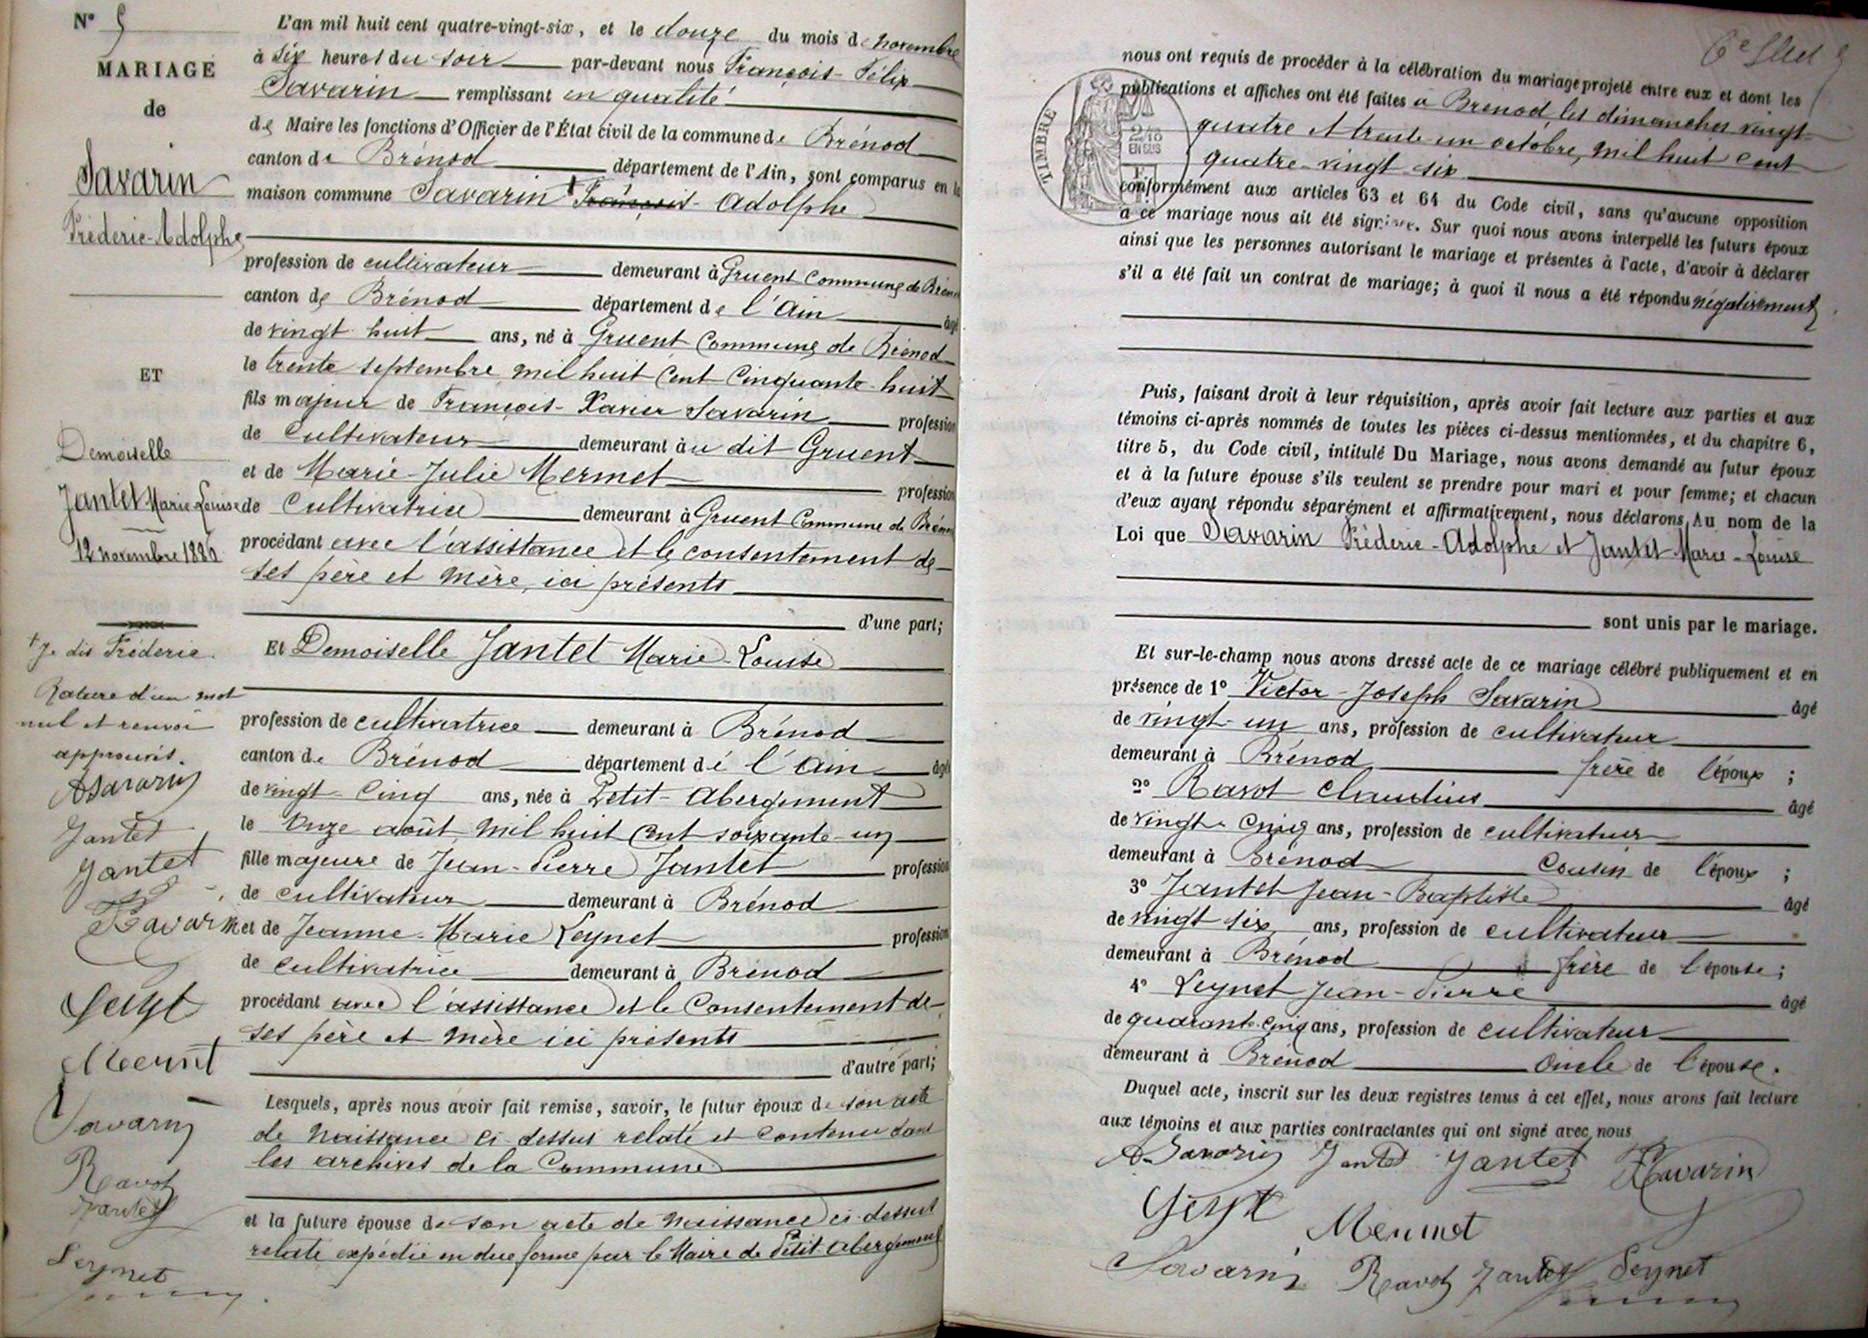 N° 5
MARIAGE
de
Savarin
Fréderic-Adolphe
ET
Demoiselle
Jantet Marie-Louise
12 novembre 1886
+ Je dis Fréderic.
Rature d'un mot
nul et renvoi
approuvés.
ASavarin
Jantet
Jantet
Savarin
Mermet
Savarin
Ravot
Jantet
Leynet
L'an mil huit cent quatre-vingt-six, et le douze du mois de novembre
à six heures du soir par-devant nous François-Félix
Savarin remplissant en qualité
de Maire les fonctions d'Officier de l'État civil de la commune de Brénod
canton de Brénod département de l'Ain, sont comparus en la
maison commune Savarin + François-Adolphe
profession de cultivateur demeurant à Gruent Commune de Brénod
canton de Brénod département de l'Ain âgé
de vingt huit ans, né à Gruent Commune de Brénod
le trente septembre mil huit Cent Cinquante-huit
fils majeur de François-Xavier Savarin profession
de Cultivateur demeurant àu dit Gruent
et de Marie-Julie Mermet profession
de Cultivatrice demeurant à Gruent Commune de Brénod
procédant avec l'assistance et le consentement de
ses père et mère, ici présents
d'une part;
Et Demoiselle Jantet Marie-Louise
profession de cultivatrice demeurant à Brénod
canton de Brénod département dé l'Ain âgée
de vingt-Cinq ans, née à Petit-Abergement
le Onze août mil huit Cent soixante-un
fille majeure de Jean-Pierre Jantet profession
de cultivateur demeurant à Brénod
et de Jeanne-Marie Leynet profession
de cultivatrice demeurant à Brénod
procédant avec l'assistance et le Consentement de
ses père et mère ici présents
d'autre part;
Lesquels, après nous avoir fait remise, savoir, le futur époux de son acte
de Naissance ci-dessus relaté et contenu dans
les archives de la Commune
et la future épouse de son acte de Naissance ci-dessus
relaté expédié en due forme par le Maire de Petit-Abergement
nous ont requis de procéder à la célébration du mariage projeté entre eux et dont les
publications et affiches ont été faites a Brénod, les dimanches vingt-
quatre et trente un octobre, mil huit cent
quatre-vingt six
conformément aux articles 63 et 64 du Code civil, sans qu'aucune opposition
à ce mariage nous ait été signifiée. Sur quoi nous avons interpellé les futurs époux
ainsi que les personnes autorisant le mariage et présentes à l'acte, d'avoir à déclarer
s'il a été fait un contrat de mariage; à quoi il nous a été répondu négativement
TIMBRE
Puis, faisant droit à leur réquisition, après avoir fait lecture aux parties et aux
témoins ci-après nommés de toutes les pièces ci-dessus mentionnées, et du chapitre 6,
titre 5, du Code civil, intitulé Du Mariage, nous avons demandé au futur époux
et à la future épouse s'ils veulent se prendre pour mari et pour femme; et chacun
d'eux ayant répondu séparément et affirmativement, nous déclarons Au nom de la
Loi que Savarin Fréderic-Adolphe et Jantet Marie-Louise
sont unis par le mariage.
Et sur-le-champ nous avons dressé acte de ce mariage célébré publiquement et en
présence de 1° Victor-Joseph Savarin âgé
de vingt-un ans, profession de cultivateur
demeurant à Brénod frère de l'époux;
2° Ravot Claudius âgé
de vingt-Cinq ans, profession de cultivateur
demeurant à Brénod Cousin de l'époux;
3° Jantet Jean-Baptiste âgé
de vingt six ans, profession de cultivateur
demeurant à Brénod frère de l'épouse;
4° Leynet Jean-Pierre âgé
de quarante-cinq ans, profession de cultivateur
demeurant à Brénod Oncle de l'épouse.
Duquel acte, inscrit sur les deux registres tenus à cet effet, nous avons fait lecture
aux témoins et aux parties contractantes qui ont signé avec nous
ASavarin Jantet Jantet Savarin
Mermet
Savarin Ravot Jantet Leynet